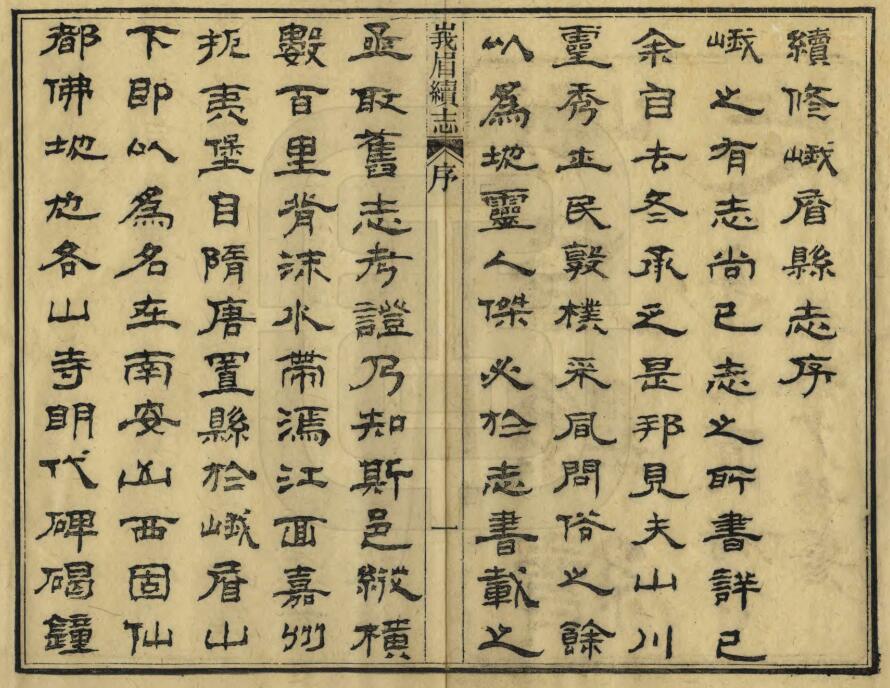 續修峨眉縣志序
峨之有志尚已志之所書詳已
余自去冬承乏是邦見夫山川
靈秀士民敦樸采風問俗之餘
以爲地靈人傑必於志書載之
峩眉續志 序 一
亟取舊志考證乃知斯邑縱橫
數百里背沫水帶溤江面嘉州
扼夷堡自隋唐置縣於峨眉山
下即以爲名在南安山西固仙
都佛地也各山寺明代碑碣鐘